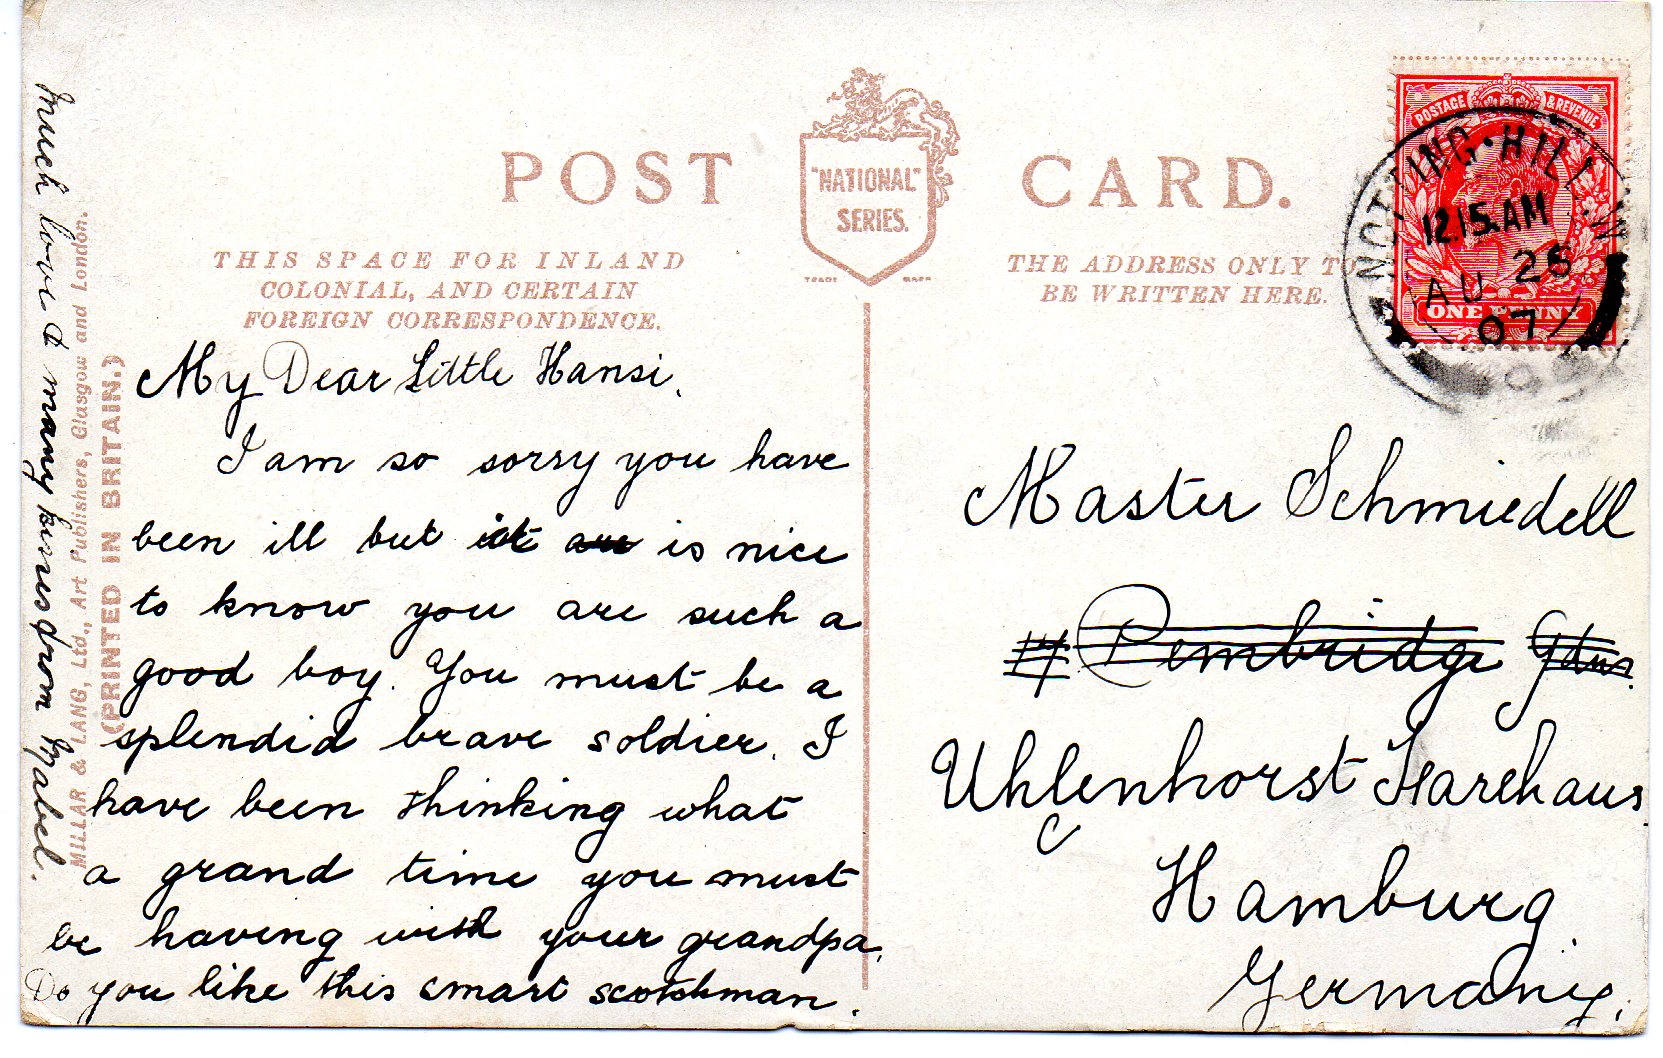 POST CARD.
"NATIONAL"
SERIES.
TRADE MARK
THIS SPACE FOR INLAND
COLONIAL, AND CERTAIN
FOREIGN CORRESPONDENCE.
THE ADDRESS ONLY TO
BE WRITTEN HERE.
POSTAGE & REVENUE
ONE PENNY
NOTTING·HILL·W
12.15.AM
AU 25
07
My Dear Little Hansi.
I am so sorry you have
been ill but it are is nice
to know you are such a
good boy. You must be a
splendid brave soldier. I
have been thinking what
a grand time you must
be having with your grandpa.
Do you like this smart scotchman.
Much love & many kisses from Mabel.
MILLAR & LANG, Ltd., Art Publishers, Glasgow and London.
(PRINTED IN BRITAIN.)
Master Schmiedell
14 Pembridge Gdns.
Uhlenhorst
Hamburg.
Germany.